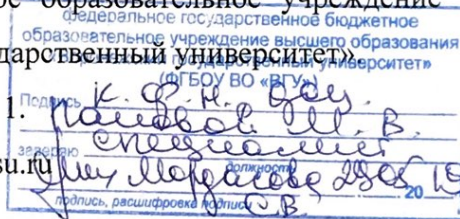 ое образовательное учреждение
федеральное государственное бюджетное
образовательное учреждение высшего образования
дарственный университет».
государственный университет»
(ФГБОУ ВО «ВГУ»)
Подпись к. ф. н. доц.
1.
Пановой М. В.
заверяю специалист
должность
su.ru
Мордасова 29.05 19
20
подпись, расшифровка подписи
С.В.